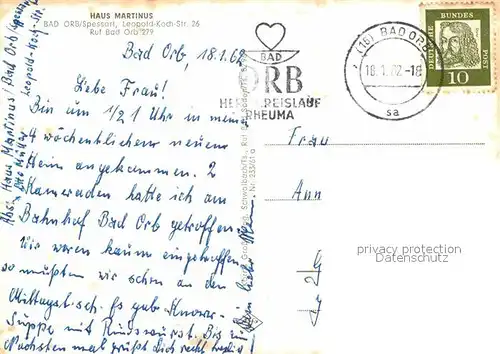 HAUS MARTINUS
BAD ORB/Spessart, Leopold-Koch-Str. 26
Ruf Bad Orb 279
Bad Orb, 18.1.62
Liebe Frau!
Bin um 1/2 1 Uhr in mein
4 wöchentlichen neuem
Heim angekommen. 2
Kameraden hatte ich am
Bahnhof Bad Orb getroffen.
Wir waren kaum eingetroffen
so mußten wir schon an den
Mittagstisch. Es gab
Suppe mit Rindswurst. Bis zum
Nächsten mal grüßt Dich recht
Dein lieber Mann
Abs. Otto Müller
Haus Martinus / Bad Orb / Spessart
Leopold-Koch-Str.
BAD
ORB
HERZ KREISLAUF
RHEUMA
(16) BAD ORB
18.1.62-18
sa
DEUTSCHE BUNDESPOST
10
Frau
Ann
privacy protection